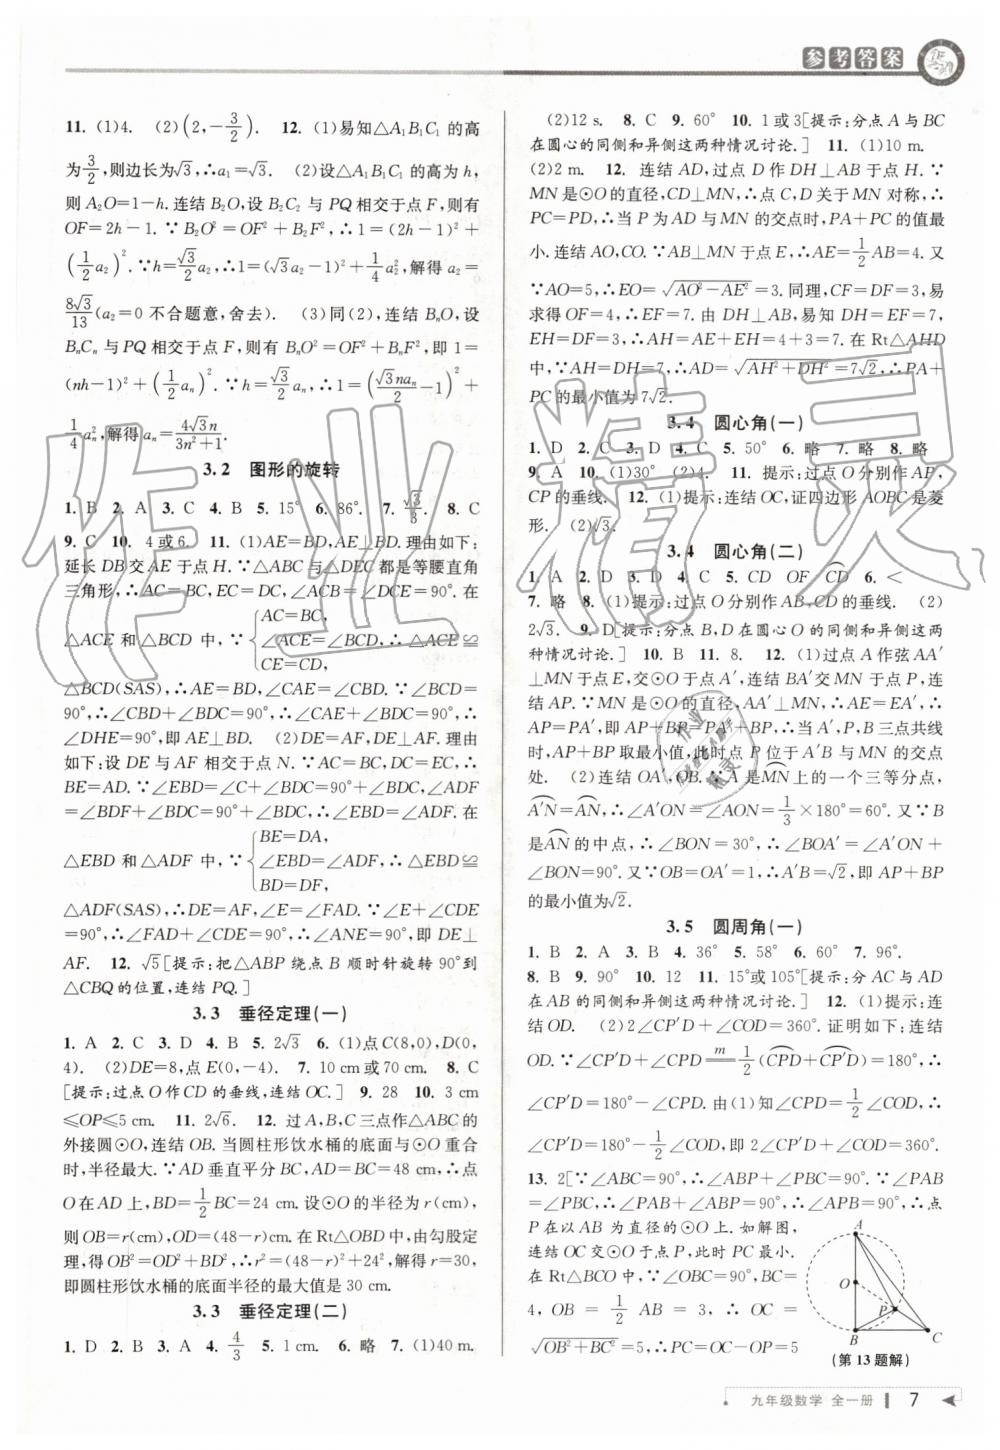 参考答案
11. (1)4. (2)(2,-3/2). 12. (1)易知△A₁B₁C₁ 的高
为3/2,则边长为√3,∴a₁=√3. (2)设△A₁B₁C₁ 的高为h,
则 A₂O=1-h. 连结B₂O,设 B₂C₂ 与 PQ 相交于点 F,则有
OF=2h-1. ∵B₂O²=OF²+B₂F²,∴1=(2h-1)²+
(1/2a₂)². ∵h=√3/2a₂,∴1=(√3a₂-1)²+1/4a₂²,解得 a₂=
8√3/13(a₂=0 不合题意,舍去). (3)同(2),连结 BₙO,设
BₙCₙ 与 PQ 相交于点 F,则有 BₙO²=OF²+BₙF²,即 1=
(nh-1)²+(1/2aₙ)². ∵h=√3/2aₙ,∴1=(√3naₙ/2-1)²+
1/4aₙ²,解得 aₙ=4√3n/3n²+1.
3.2 图形的旋转
1. B 2. A 3. C 4. B 5. 15° 6. 86° 7. √3/3 8. C
9. C 10. 4或6. 11. (1)AE=BD,AE⊥BD. 理由如下:
延长 DB 交 AE 于点 H. ∵△ABC 与△DEC 都是等腰直角
三角形,∴AC=BC,EC=DC,∠ACB=∠DCE=90°. 在
△ACE 和△BCD 中,∵{AC=BC, ∠ACE=∠BCD, CE=CD, ∴△ACE≌
△BCD(SAS),∴AE=BD,∠CAE=∠CBD. ∵∠BCD=
90°,∴∠CBD+∠BDC=90°,∴∠CAE+∠BDC=90°,∴
∠DHE=90°,即 AE⊥BD. (2)DE=AF,DE⊥AF. 理由
如下:设 DE 与 AF 相交于点 N. ∵AC=BC,DC=EC,∴
BE=AD. ∵∠EBD=∠C+∠BDC=90°+∠BDC,∠ADF
=∠BDF+∠BDC=90°+∠BDC,∴∠EBD=∠ADF. 在
△EBD 和△ADF 中,∵{BE=DA, ∠EBD=∠ADF, BD=DF, ∴△EBD≌
△ADF(SAS),∴DE=AF,∠E=∠FAD. ∵∠E+∠CDE
=90°,∴∠FAD+∠CDE=90°,∴∠ANE=90°,即 DE⊥
AF. 12. √5[提示:把△ABP 绕点 B 顺时针旋转 90°到
△CBQ 的位置,连结 PQ.]
3.3 垂径定理(一)
1. A 2. C 3. D 4. B 5. 2√3 6. (1)点C(8,0),D(0,
4). (2)DE=8,点 E(0,-4). 7. 10 cm或70 cm. 8. C
[提示:过点 O 作 CD 的垂线,连结 OC.] 9. 28 10. 3 cm
≤OP≤5 cm. 11. 2√6. 12. 过 A,B,C 三点作△ABC 的
外接圆⊙O,连结 OB. 当圆柱形饮水桶的底面与⊙O 重合
时,半径最大. ∵AD 垂直平分 BC,AD=BC=48 cm,∴点
O 在 AD 上,BD=1/2BC=24 cm. 设⊙O 的半径为 r(cm),
则 OB=r(cm),OD=(48-r)cm. 在 Rt△OBD 中,由勾股定
理,得 OB²=OD²+BD²,∴r²=(48-r)²+24²,解得 r=30,
即圆柱形饮水桶的底面半径的最大值是 30 cm.
3.3 垂径定理(二)
1. D 2. B 3. A 4. 4/3 5. 1 cm. 6. 略 7. (1)40 m.
(2)12 s. 8. C 9. 60° 10. 1或3[提示:分点 A 与 BC
在圆心的同侧和异侧这两种情况讨论.] 11. (1)10 m.
(2)2 m. 12. 连结 AD,过点 D 作 DH⊥AB 于点 H. ∵
MN 是⊙O 的直径,CD⊥MN,∴点 C,D 关于 MN 对称,∴
PC=PD,∴当 P 为 AD 与 MN 的交点时,PA+PC 的值最
小. 连结 AO,CO. ∵AB⊥MN 于点 E,∴AE=1/2AB=4. 又
∵AO=5,∴EO=√AO²-AE²=3. 同理,CF=DF=3,易
求得 OF=4,∴EF=7. 由 DH⊥AB,易知 DH=EF=7,
EH=DF=3,∴AH=AE+EH=4+3=7. 在 Rt△AHD
中,∵AH=DH=7,∴AD=√AH²+DH²=7√2,∴PA+
PC 的最小值为 7√2.
3.4 圆心角(一)
1. D 2. C 3. A 4. C 5. 50° 6. 略 7. 略 8. 略
9. A 10. (1)30° (2)4. 11. 提示:过点 O 分别作 AP,
CP 的垂线. 12. (1)提示:连结 OC,证四边形 AOBC 是菱
形. (2)√3.
3.4 圆心角(二)
1. A 2. D 3. D 4. C 5. CD OF CD 6. <
7. 略 8. (1)提示:过点 O 分别作 AB,CD 的垂线. (2)
2√3. 9. D[提示:分点 B,D 在圆心 O 的同侧和异侧这两
种情况讨论.] 10. B 11. 8. 12. (1)过点 A 作弦 AA′
⊥MN 于点 E,交⊙O 于点 A′,连结 BA′交 MN 于点 P,连
结 AP. ∵MN 是⊙O 的直径,AA′⊥MN,∴AE=EA′,∴
AP=PA′,即 AP+BP=PA′+BP,∴当 A′,P,B 三点共线
时,AP+BP 取最小值,此时点 P 位于 A′B 与 MN 的交点
处. (2)连结 OA′,OB. ∵A 是MN上的一个三等分点,
∴A′N=AN,∴∠A′ON=∠AON=1/3×180°=60°. 又∵B
是AN的中点,∴∠BON=30°,∴∠BOA′=∠A′ON+
∠BON=90°. 又∵OB=OA′=1,∴A′B=√2,即 AP+BP
的最小值为√2.
3.5 圆周角(一)
1. B 2. A 3. B 4. 36° 5. 58° 6. 60° 7. 96°.
8. B 9. 90° 10. 12 11. 15°或105°[提示:分 AC 与 AD
在 AB 的同侧和异侧这两种情况讨论.] 12. (1)提示:连
结 OD. (2)2∠CP′D+∠COD=360°. 证明如下:连结
OD. ∵∠CP′D+∠CPD m=1/2(CPD+CP′D)=180°,∴
∠CP′D=180°-∠CPD. 由(1)知∠CPD=1/2∠COD,∴
∠CP′D=180°-1/2∠COD,即 2∠CP′D+∠COD=360°.
13. 2[∵∠ABC=90°,∴∠ABP+∠PBC=90°. ∵∠PAB
=∠PBC,∴∠PAB+∠ABP=90°,∴∠APB=90°,∴点
P 在以 AB 为直径的⊙O 上. 如解图,
连结 OC 交⊙O 于点 P,此时 PC 最小.
在 Rt△BCO 中,∵∠OBC=90°,BC=
4,OB=1/2AB=3,∴OC=
√OB²+BC²=5,∴PC=OC-OP=5
A
O
P
B
C
(第13题解)
九年级数学 全一册 7
作业精灵
作业精灵